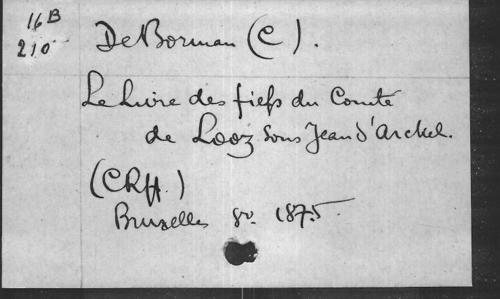 16B
210
De Borman (C).
Le Livre des fiefs du Comté
de Looz sous Jean d'Arckel.
Bruxelles 8º. 1875.